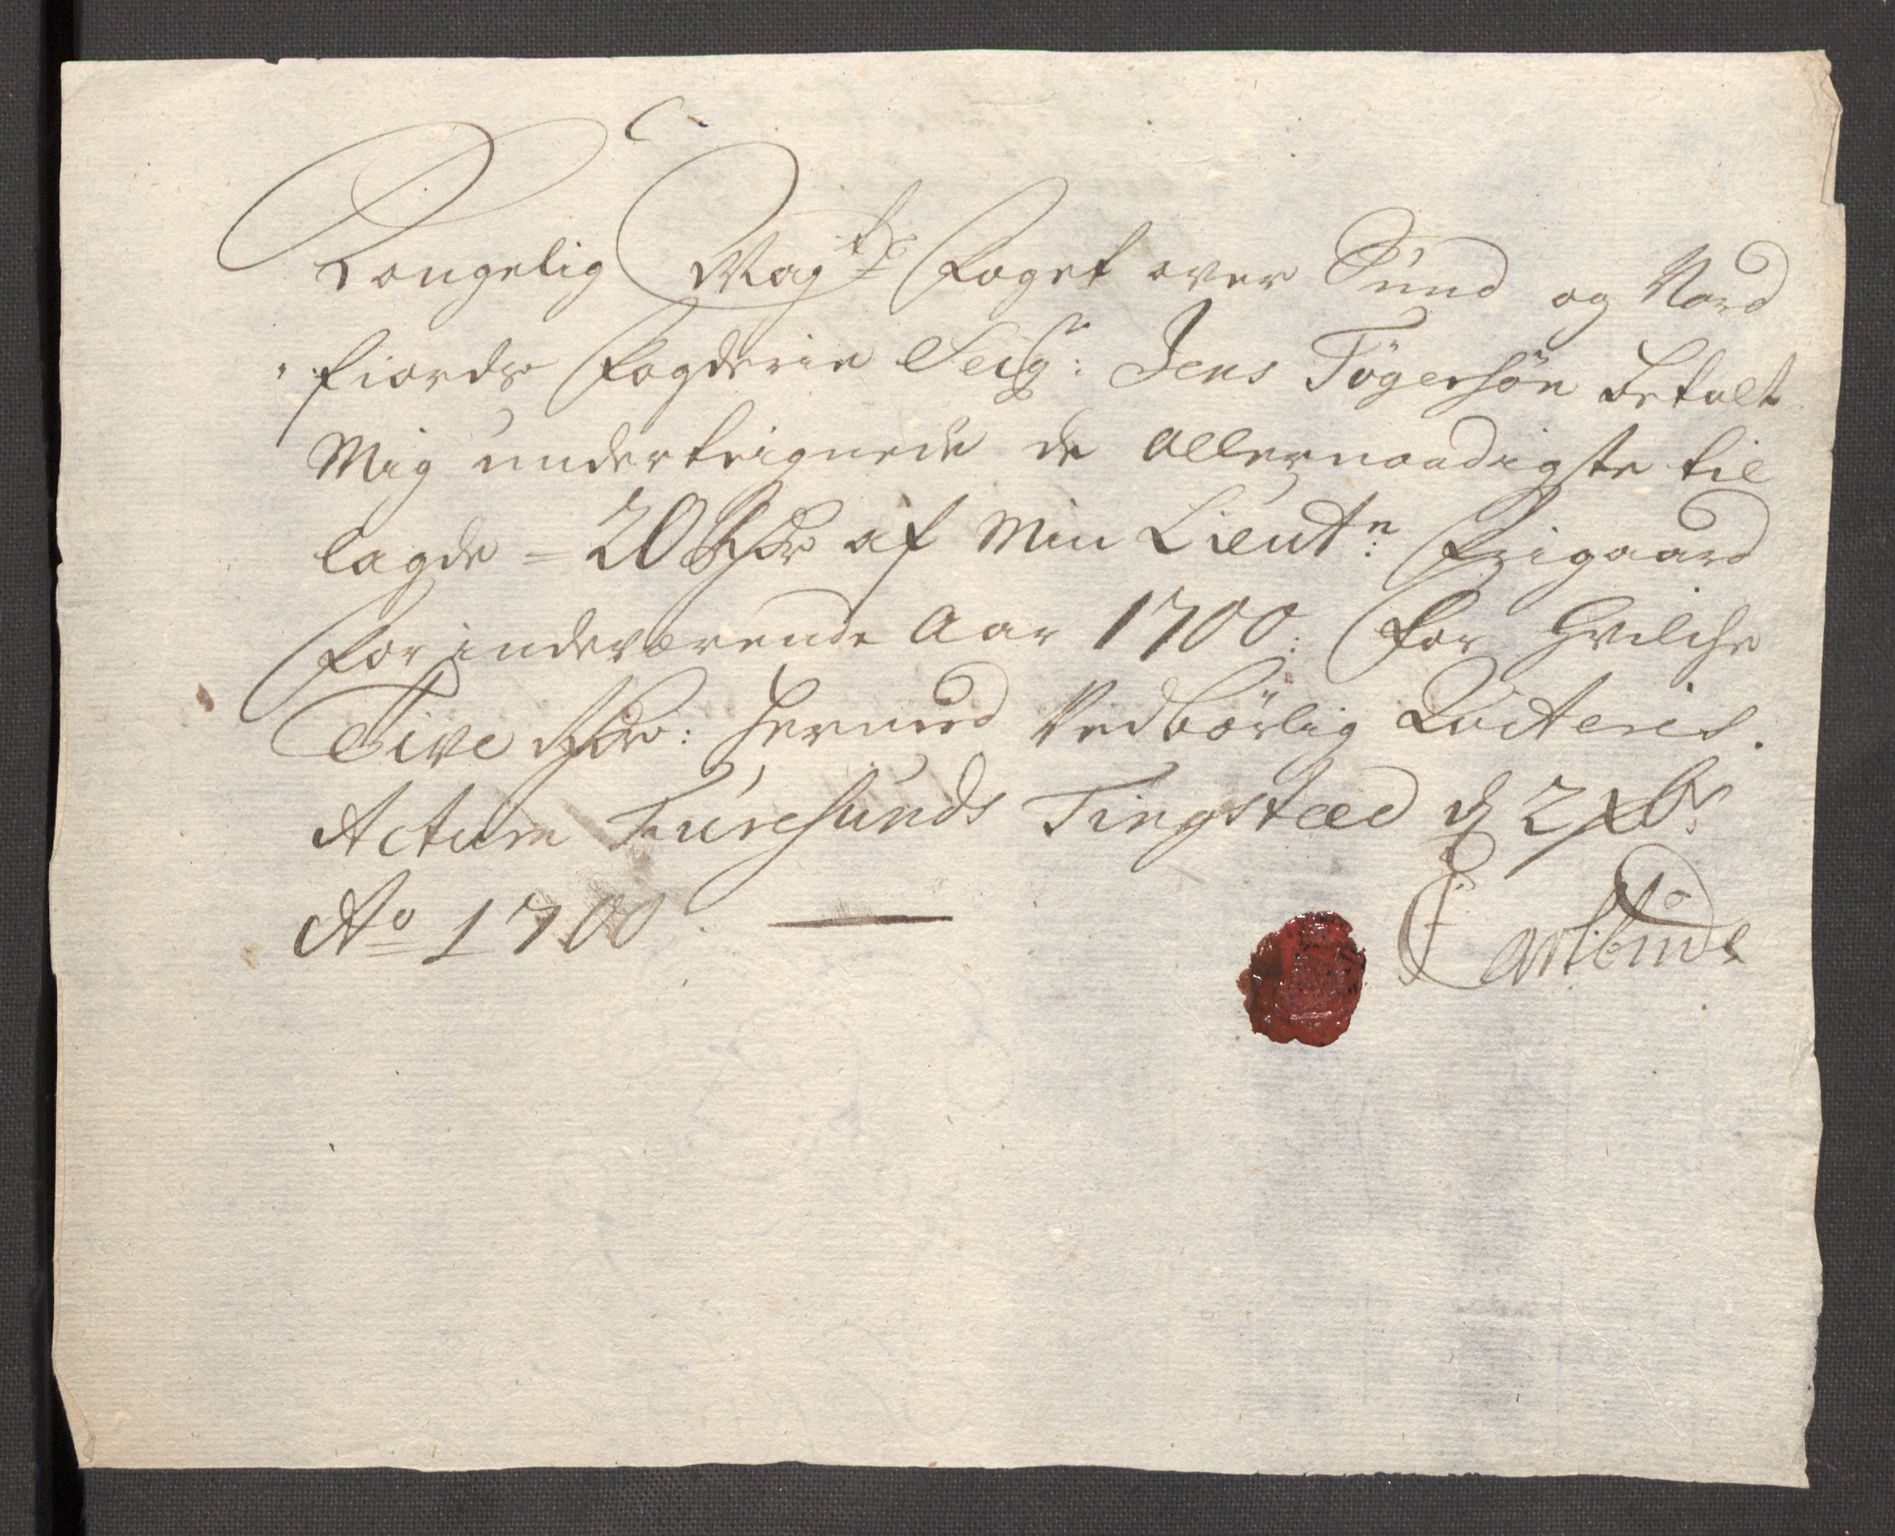 Kongelig Mayts Foget over Sund og Nord
fiords Fogderie Seigr: Jens Tögersön betalt
Mig underteignede de allernaadigste til
lagde = 20 Rdr af Min Lieutn: Friigaard
for indeværende Aar 1700: for hvilche
Tive Rdr: hermed Vedbörlig Qviteris.
Actum Furesunds Tingstæd d 2 Xbr:
Ao 1700